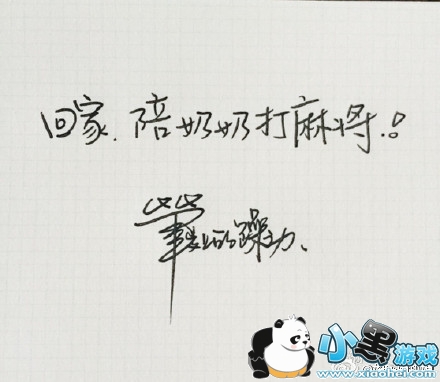 回家.陪奶奶打麻将.!
的躁动、
小黑游戏
www.xiaohei.com